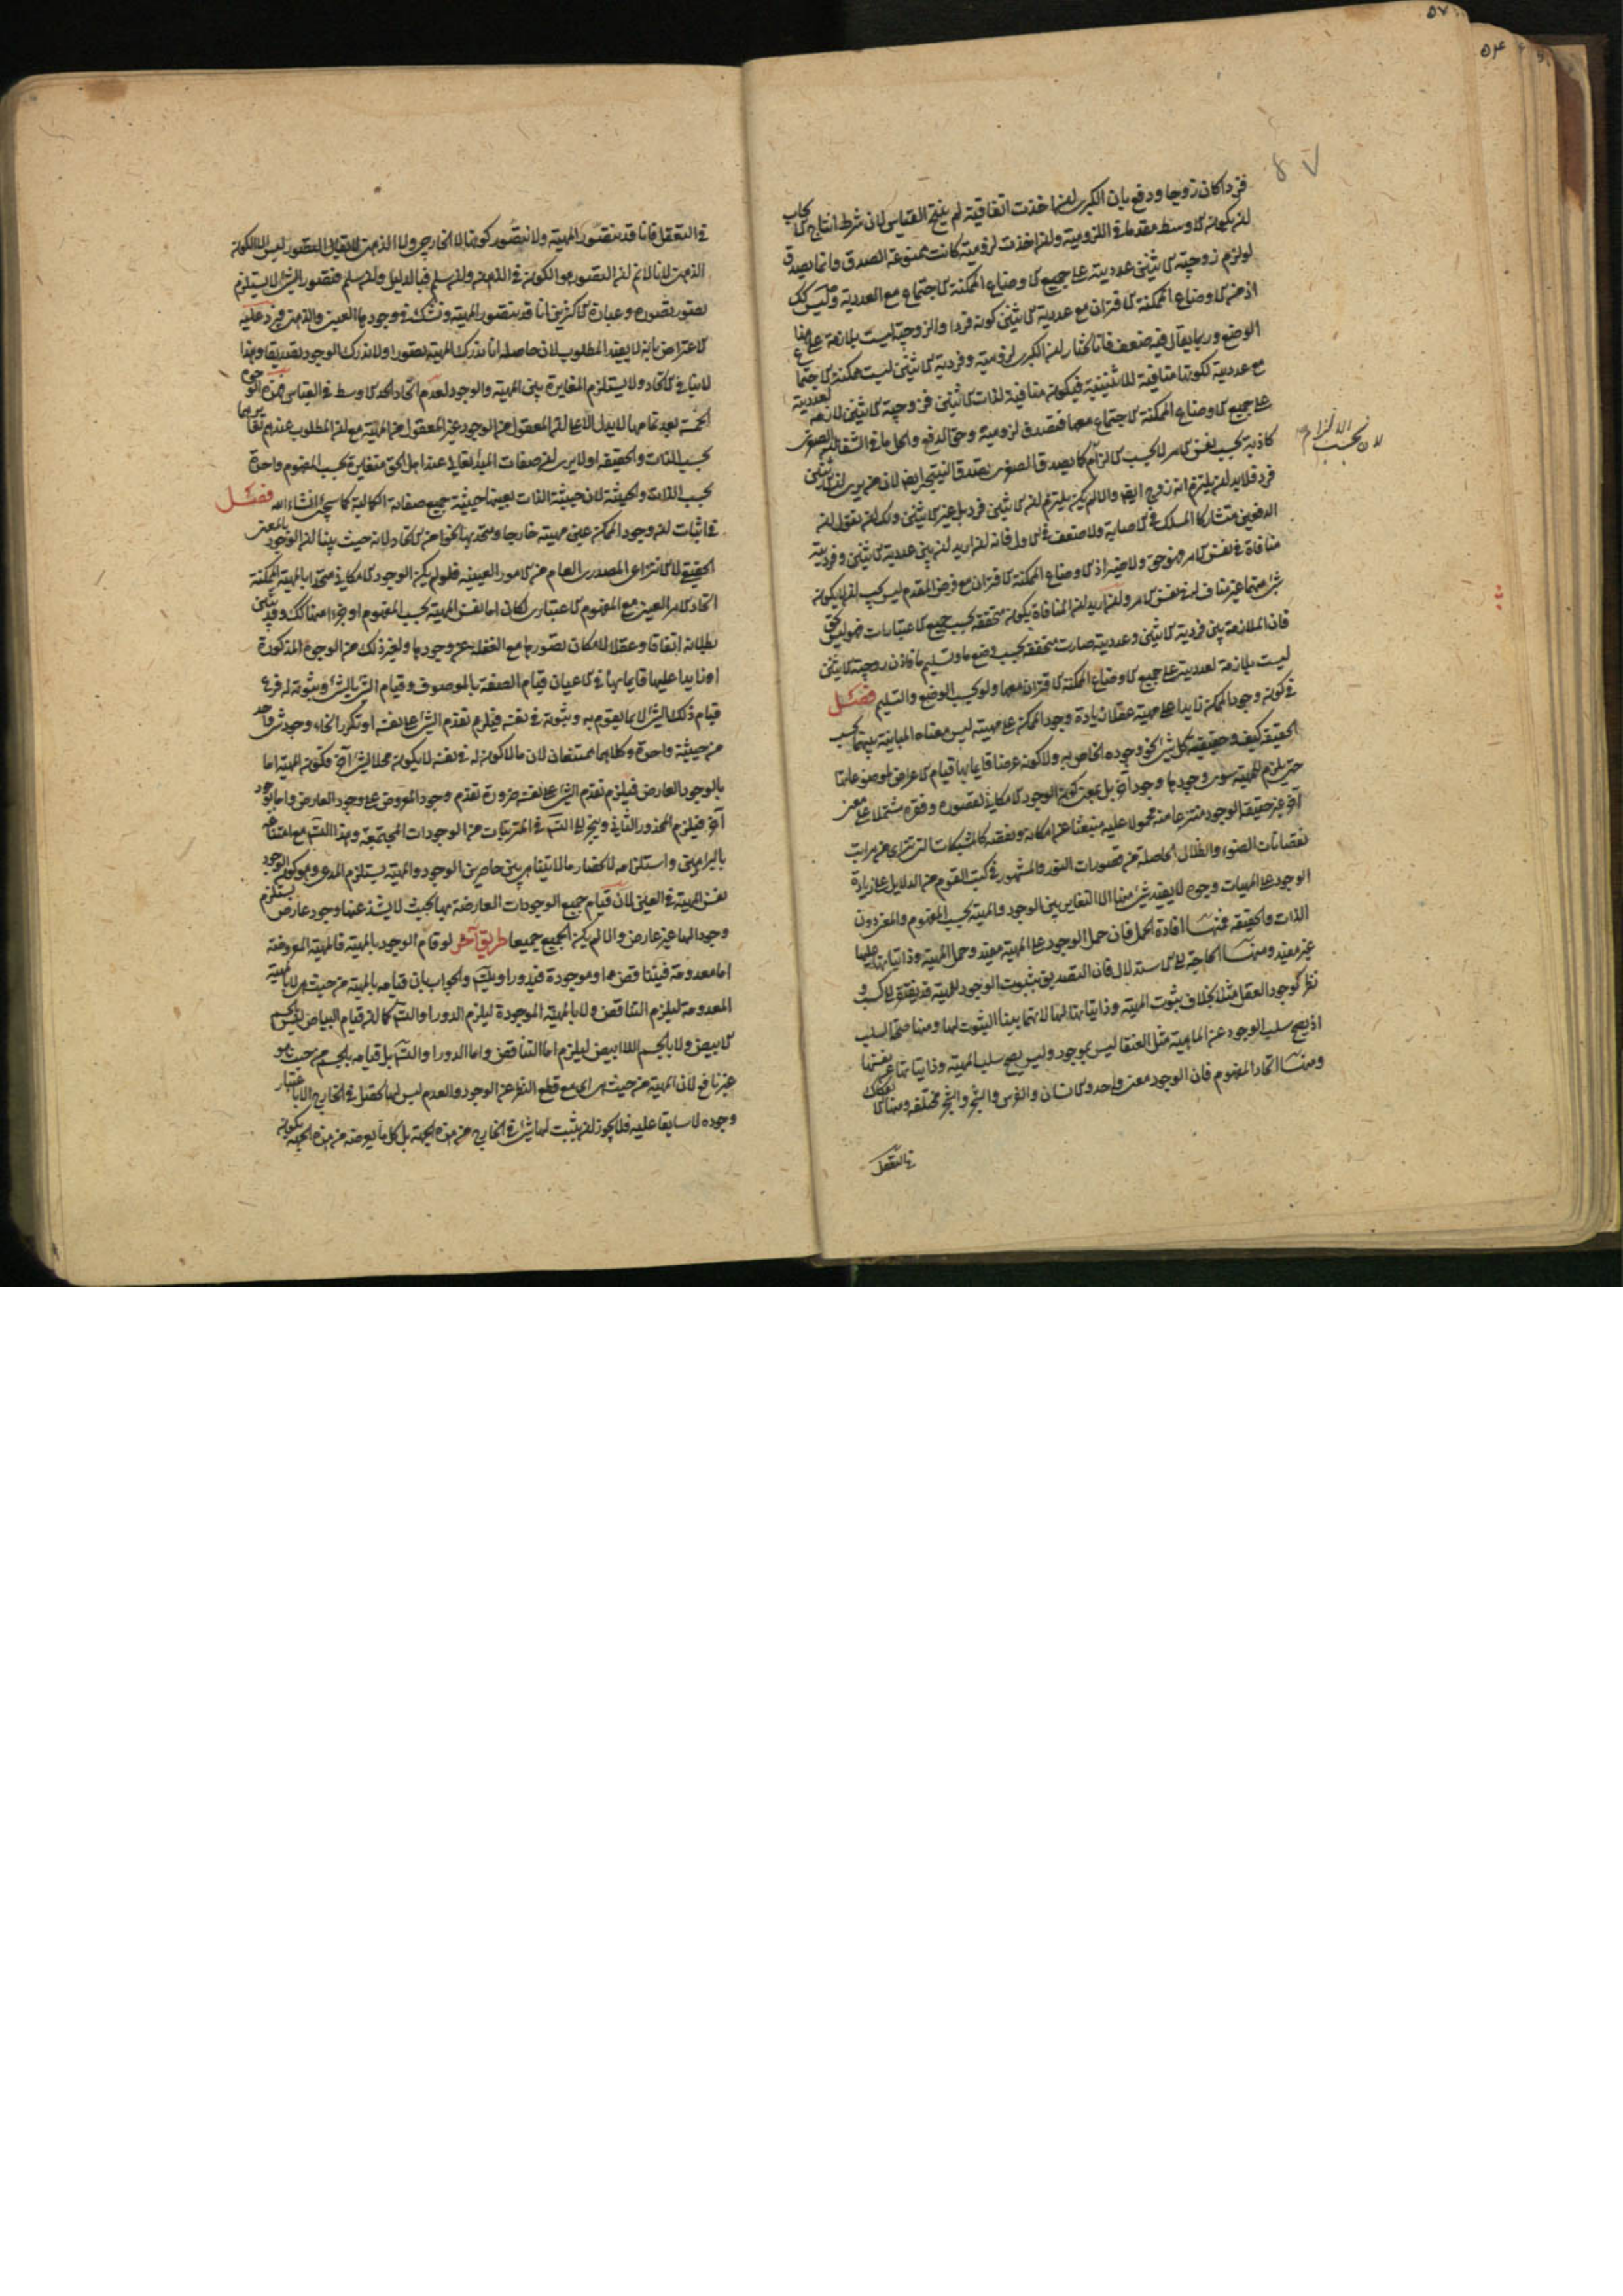 ٥٧
٥٤
٥٧
فردا كان زوجا ودفع بان الكبرى ان اخذت اتفاقية لم ينتج القياس لان شرط انتاج الايجاب
ان يكون الاوسط مقدما في اللزومية وان اخذت لزومية كانت ممنوعة الصدق وانما يصدق
لو لزم زوجية الاثنين عدديته على جميع الاوضاع الممكنة الاجتماع مع العددية وليس كك
اذ من الاوضاع الممكنة الاقتران مع عددية الاثنين كونه فردا والزوجية ليست بلازمة على هذا
الوضع وربما يقال فيه ضعف فانا نختار ان الكبرى لزومية وفردية الاثنين ليست ممكنة الاجتماع
مع عدديته لكونها منافية للاثنينية فيكون منافية لذات الاثنين فزوجية الاثنين لازمة لعدديته
على جميع الاوضاع الممكنة الاجتماع معها فتصدق لزومية وحق الدفع والحل ما في الشفاء ان الصغرى
كاذبة بحسب نفس الامر لا بحسب الالزام كما يصدق الصغرى تصدق النتيجة ايضا لان من يرى ان الاثنين
فرد فلا بد ان يلتزم انه زوج ايضا والا لم يكن يلتزم ان الاثنين فرد بل غير الاثنين ولك ان تقول ان
الدفعين متشاركا المسلك في الاصابه ولا ضعف في الاول فانه ان اريد ان بين عددية الاثنين وفرديته
منافاة في نفس الامر فهو حق ولا ضير اذ الاوضاع الممكنة الاقتران مع فرض المقدم ليس يجب ان يكون
شيء منها غير مناف له في نفس الامر وان اريد ان المنافاة يكون متحققة بحسب جميع الاعتبارات فهو ليس بحق
فان الملازمة بين فردية الاثنين وعدديته صارت متحققة بحسب وضع ما وتسليم ما فاذن زوجية الاثنين
ليست بلازمة لعدديته على جميع الاوضاع الممكنة الاقتران معها ولو بحسب الوضع والتسليم فصل
في كون وجود الممكن زايدا على مهيته عقلا زيادة وجود الممكن على مهيته ليس معناه المباينة بينهما بحسب
الحقيقة كيف وحقيقة كل شيء نحو وجوده الخاص به ولا كونه عرضا قايما بها قيام الاعراض لموضوعاتها
حتى يلزم للمهية سوى وجودها وجود آخر بل بمعنى كون الوجود الامكاني لقصوره وفقره مشتملا على معنى
آخر غير حقيقة الوجود منتزعا منه محمولا عليه منبعثا عن امكانه ونقصه كالمشبكات التي تتراءى من مراتب
نقصانات الضوء والظلال الحاصلة من قصورات النور والمشهور في كتب القوم من الدلايل على زيادة
الوجود على المهيات وجوه لا يفيد شيء منها الا التغاير بين الوجود والمهية بحسب المفهوم والمعنى دون
الذات والحقيقة فمنها افادة الحمل فان حمل الوجود على المهية مفيد وحمل المهية وذاتياتها عليها
غير مفيد ومنها الحاجة الى الاستدلال فان التصديق بثبوت الوجود للمهية قد يفتقر الى كسب و
نظر كوجود العقل مثلا بخلاف ثبوت المهية وذاتياتها لها لانهما بينا الثبوت لها ومنها صحة السلب
اذ يصح سلب الوجود عن الماهية مثل العنقا ليس بموجود وليس يصح سلب المهية وذاتياتها عن نفسها
ومنها اتحاد المفهوم فان الوجود معنى واحد والانسان والفرس والشجر والحجر مختلفه ومنها الانفكاك
في التعقل
لان بحسب الالزام
في التعقل فانا قد نتصور المهية ولا نتصور كونها لا الخارجي ولا الذهني لا يقال التصور ليس الا الكون
الذهني لانا لا نم ان التصور هو الكون في الذهن وان سلم فبالدليل وان سلم فتصور الشيء لا يستلزم
تصور تصوره وعبارة الاكثرين انا قد نتصور المهية ونشك في وجودها العيني والذهني فيرد عليه
الاعتراض بانه لا يفيد المطلوب لان حاصله انا ندرك المهية تصورا ولا ندرك الوجود تصديقا وهذا
لا ينافي الاتحاد ولا يستلزم المغايرة بين المهية والوجود لعدم اتحاد الحد الاوسط في القياس فهذه الوجوه
الخمسة بعد تمامها لا يدل الا على ان المعقول من الوجود غير المعقول من المهية مع ان المطلوب عندهم تغايرهما
بحسب الذات والحقيقة اولا يرى ان صفات المبدأ تعالى عند اهل الحق متغايرة بحسب المفهوم واحدة
بحسب الذات والحيثية لان حيثية الذات بعينها حيثية جميع صفاته الكمالية كما سيجيء انشاء الله فصل
في اثبات ان وجود الممكن عين مهيته خارجا ومتحد بها نحوا من الاتحاد لانه حيث بينا ان الوجود بالمعنى
الحقيقي لا الانتزاعي المصدري العام من الامور العينيه فلو لم يكن الوجود الامكاني متحدا بالمهية الممكنة
اتحاد الامر العيني مع المفهوم الاعتباري لكان اما نفس المهية بحسب المفهوم او جزءا منها كك وقد تبين
بطلانه اتفاقا وعقلا لامكان تصورها مع الغفله عن وجودها ولغير ذلك من الوجوه المذكورة
او زايدا عليها قايما بها في الاعيان قيام الصفة بالموصوف وقيام الشيء بالشيء وثبوته له فرع
قيام ذلك الشيء لا بما يقوم به وثبوته في نفسه فيلزم تقدم الشيء على نفسه او تكرر انحاء وجود شيء واحد
من حيثية واحدة وكلاهما ممتنعان لان ما لا كون له في نفسه لا يكون محلا لشيء آخر فكون المهية اما
بالوجود العارض فيلزم تقدم الشيء على نفسه ضرورة تقدم وجود المعروض على وجود العارض واما بوجود
آخر فيلزم المحذور الثاني وينجر الى التس في المترتبات من الوجودات المجتمعة وهذا التس مع امتناعه
بالبراهين واستلزامه لانحصار ما لا يتناهى بين حاصرين الوجود والمهية يستلزم المدعى وهو كون الوجود
نفس المهية في العين لان قيام جميع الوجودات العارضة بها بحيث لا يشذ عنها وجود عارض يستلزم
وجودا لها غير عارض والا لم يكن الجميع جميعا طريق آخر لو قام الوجود بالمهية فالمهية المعروضة
اما معدومة فيتناقض او موجودة فيدور او يتس والجواب بان قيامه بالمهية من حيث هي لا بالمهية
المعدومة ليلزم التناقض ولا بالمهية الموجودة ليلزم الدور او التس كما ان قيام البياض ليس بالجسم
الابيض ولا بالجسم اللاابيض ليلزم اما التناقض واما الدور او التس بل قيامه بالجسم من حيث هو
غير نافع لان المهية من حيث هي اي مع قطع النظر عن الوجود والعدم ليس لها تحصل في الخارج الا باعتبار
وجوده لا سابقا عليه فلا يجوز ان يثبت لها شيء في الخارج من هذه الجهة بل كل ما يعرضه من هذه الجهة يكون